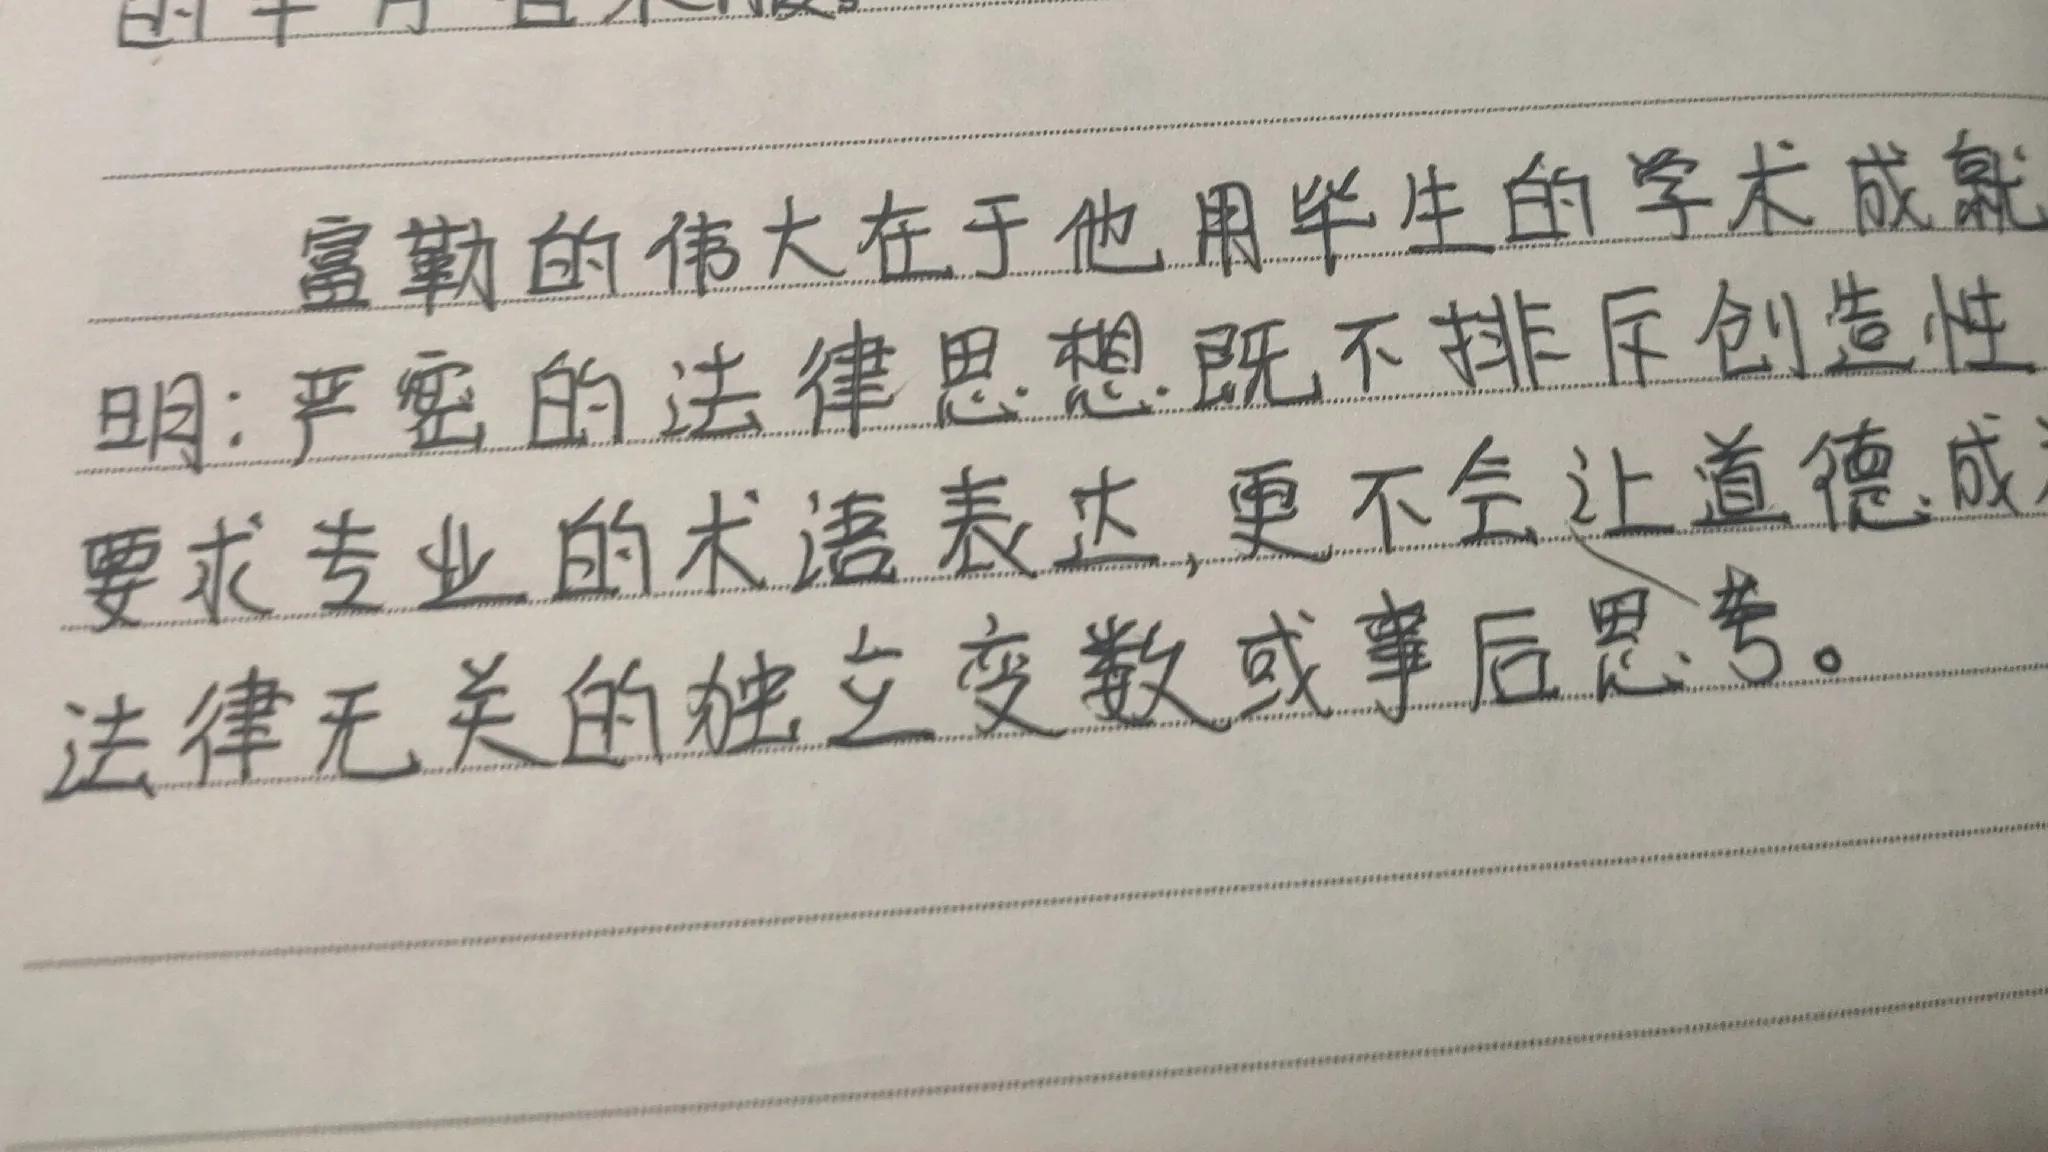 富勤的伟大在于他用毕生的学术成就
明：严密的法律思想既不排斥创造性
要求专业的术语表达，更不会让道德成
法律无关的独立变数或事后思考。